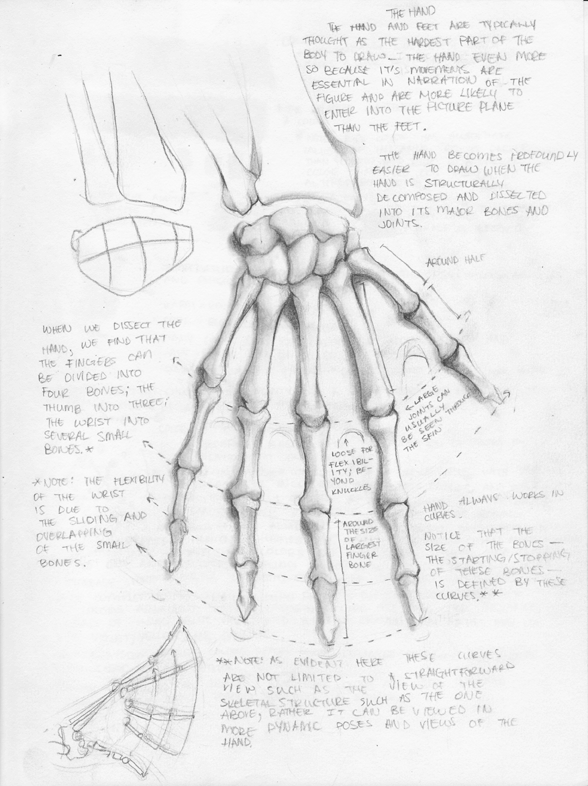 THE HAND
THE HAND AND FEET ARE TYPICALLY
THOUGHT AS THE HARDEST PART OF THE
BODY TO DRAW — THE HAND EVEN MORE
SO BECAUSE IT'S MOVEMENTS ARE
ESSENTIAL IN NARRATION OF THE
FIGURE AND ARE MORE LIKELY TO
ENTER INTO THE PICTURE PLANE
THAN THE FEET.
THE HAND BECOMES PROFOUNDLY
EASIER TO DRAW WHEN THE
HAND IS STRUCTURALLY
DECOMPOSED AND DISSECTED
INTO ITS MAJOR BONES AND
JOINTS.
AROUND HALF
WHEN WE DISSECT THE
HAND, WE FIND THAT
THE FINGERS CAN
BE DIVIDED INTO
FOUR BONES; THE
THUMB INTO THREE;
THE WRIST INTO
SEVERAL SMALL
BONES.*
*NOTE: THE FLEXIBILITY
OF THE WRIST
IS DUE TO
THE SLIDING AND
OVERLAPPING
OF THE SMALL
BONES.
LARGE
JOINTS CAN
USUALLY
BE SEEN THROUGH
THE SKIN
LOOSE FOR
FLEXIBIL-
ITY; BE-
YOND
KNUCKLES
AROUND
THE SIZE
OF
LARGEST
FINGER
BONE
HAND ALWAYS WORKS IN
CURVES.
NOTICE THAT THE
SIZE OF THE BONES —
THE STARTING/STOPPING
OF THESE BONES —
IS DEFINED BY THESE
CURVES.**
**NOTE: AS EVIDENT HERE THESE CURVES
ARE NOT LIMITED TO A STRAIGHTFORWARD
VIEW SUCH AS THE VIEW OF THE
SKELETAL STRUCTURE SUCH AS THE ONE
ABOVE; RATHER IT CAN BE VIEWED IN
MORE DYNAMIC POSES AND VIEWS OF THE
HAND.